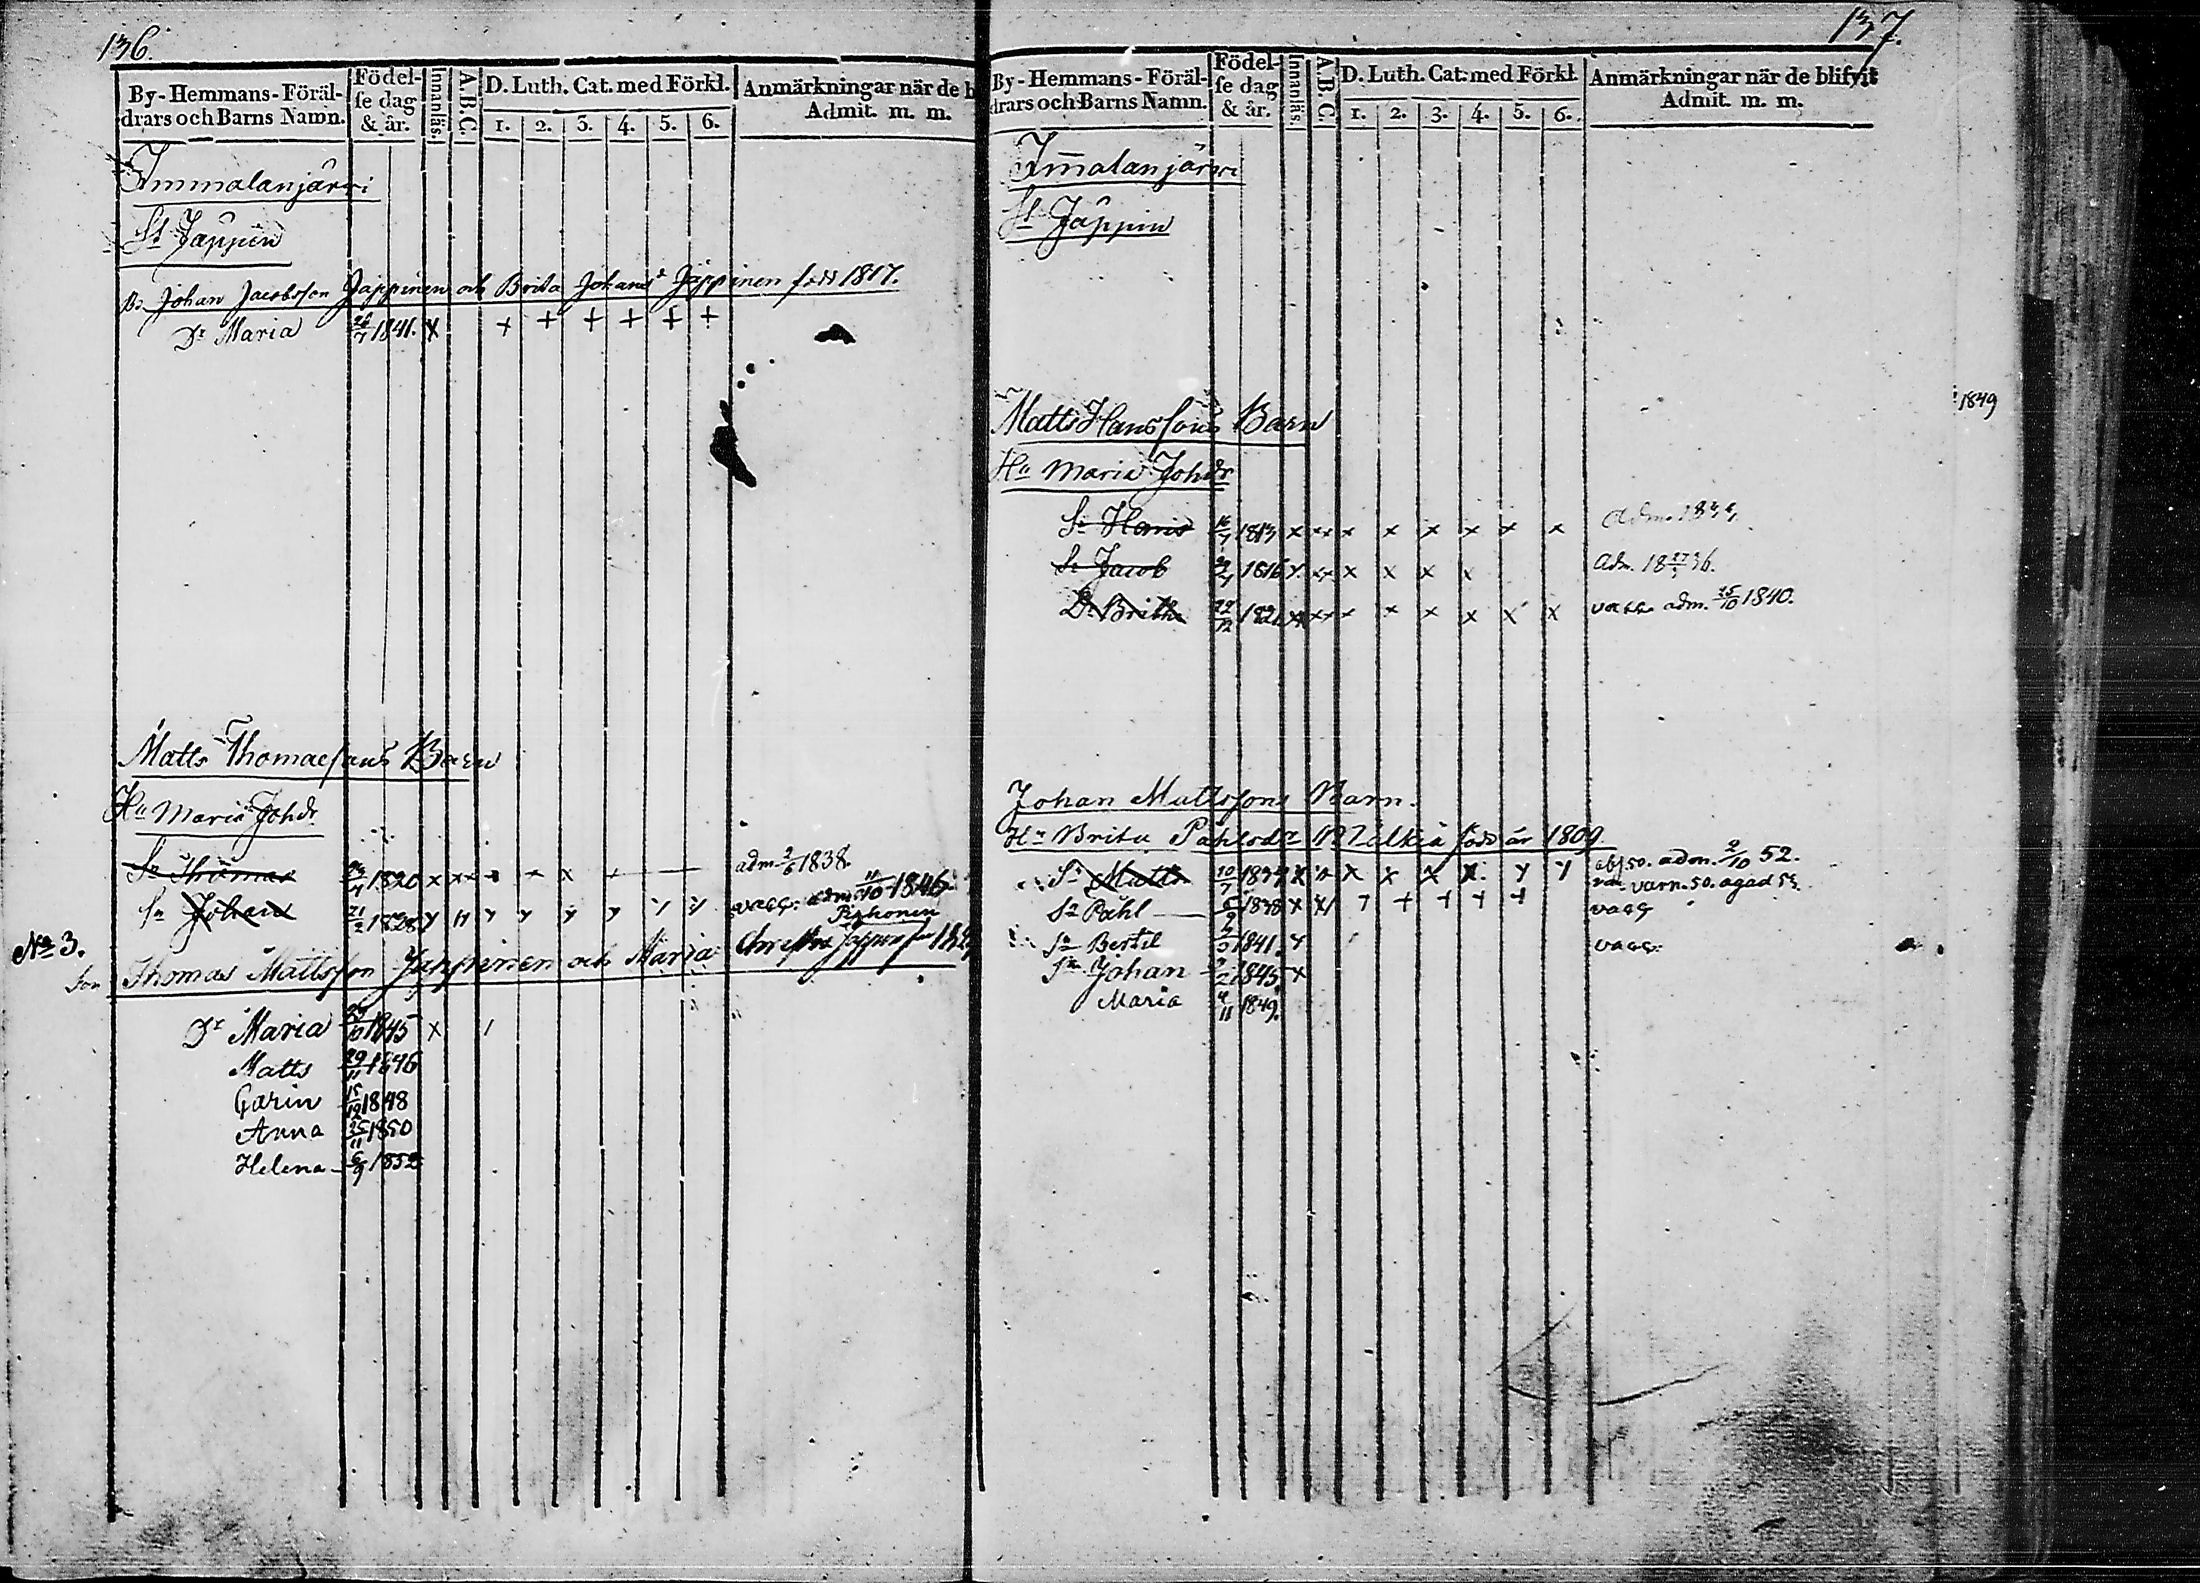 136.
By-Hemmans-Föräl-
drars och Barns Namn.
Födel-
se dag
& år.
Innanläs.
A.B.C.
D. Luth. Cat. med Förkl.
1. 2. 3. 4. 5. 6.
Anmärkningar när de b
Admit. m. m.
Immalanjärwi
St Jäppin
Johan Jacobsson Jäppinen och Brita Johansd Jäppinen född 1817.
Dr Maria 26/7 1841. x + + + + + +
Matts Thomaesons Barn
Hu Maria Johdr
Sn Thomas 1820 x x x x x + adm. 2/6 1838.
Sn Johan 21/2 1828 y y y y y y y vacc. adm. 11/10 1846.
No 3.
Pirhonen
Son Thomas Mattsson Jäppinen och Maria
Dr Maria 1845 x 1
Matts 29/11 1846
Carin 15/12 1848
Anna 25/11 1850
Helena 6/9 1852
137.
By-Hemmans-Föräl-
drars och Barns Namn.
Födel-
se dag
& år.
Innanläs.
A.B.C.
D. Luth. Cat. med Förkl.
1. 2. 3. 4. 5. 6.
Anmärkningar när de blifvit
Admit. m. m.
Im̄alanjärwi
St Jäppin
1849
Matts Hanssons Barn
Hu Maria Johdr
Sn Hans 1813 x x x x x x x x Adm.
Sn Jacob 1816 y x x x x x Adm. 18 27/3 36.
Dr Brita 22/12 182 x x x x x x x x vacc. adm. 25/10 1840.
Johan Mattssons Barn.
Hu Brita Påhlsdr född år 1809
Sn Matts 10/7 x x x x x y y adm. 2/10 52.
varn. 50. agad
Sn Påhl 1838 x x + + + + + vacc
Sn Bertil 1841. y vacc.
Sn Johan 1845 x
Maria 4/11 1849.